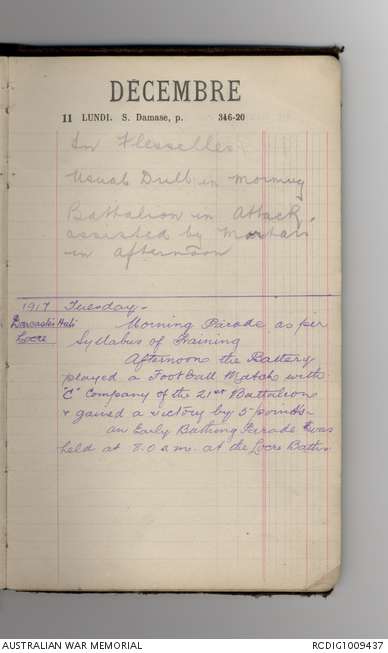 DÉCEMBRE
11 LUNDI. S. Damase, p. 346-20
In Flesselles
Usual Drill in morning
Battalion in Attack,
assisted by Mortars
in afternoon
1917 Tuesday -
Doncaster Huts Morning Parade as per
Locre Syllabus of Training
Afternoon the Battery
played a Football Match with
"C" Company of the 21st Battalion
& gained a victory by 5 points -
An Early Bathing Parade was
held at 8.0 a.m. at the Locre Baths.
AUSTRALIAN WAR MEMORIAL RCDIG1009437